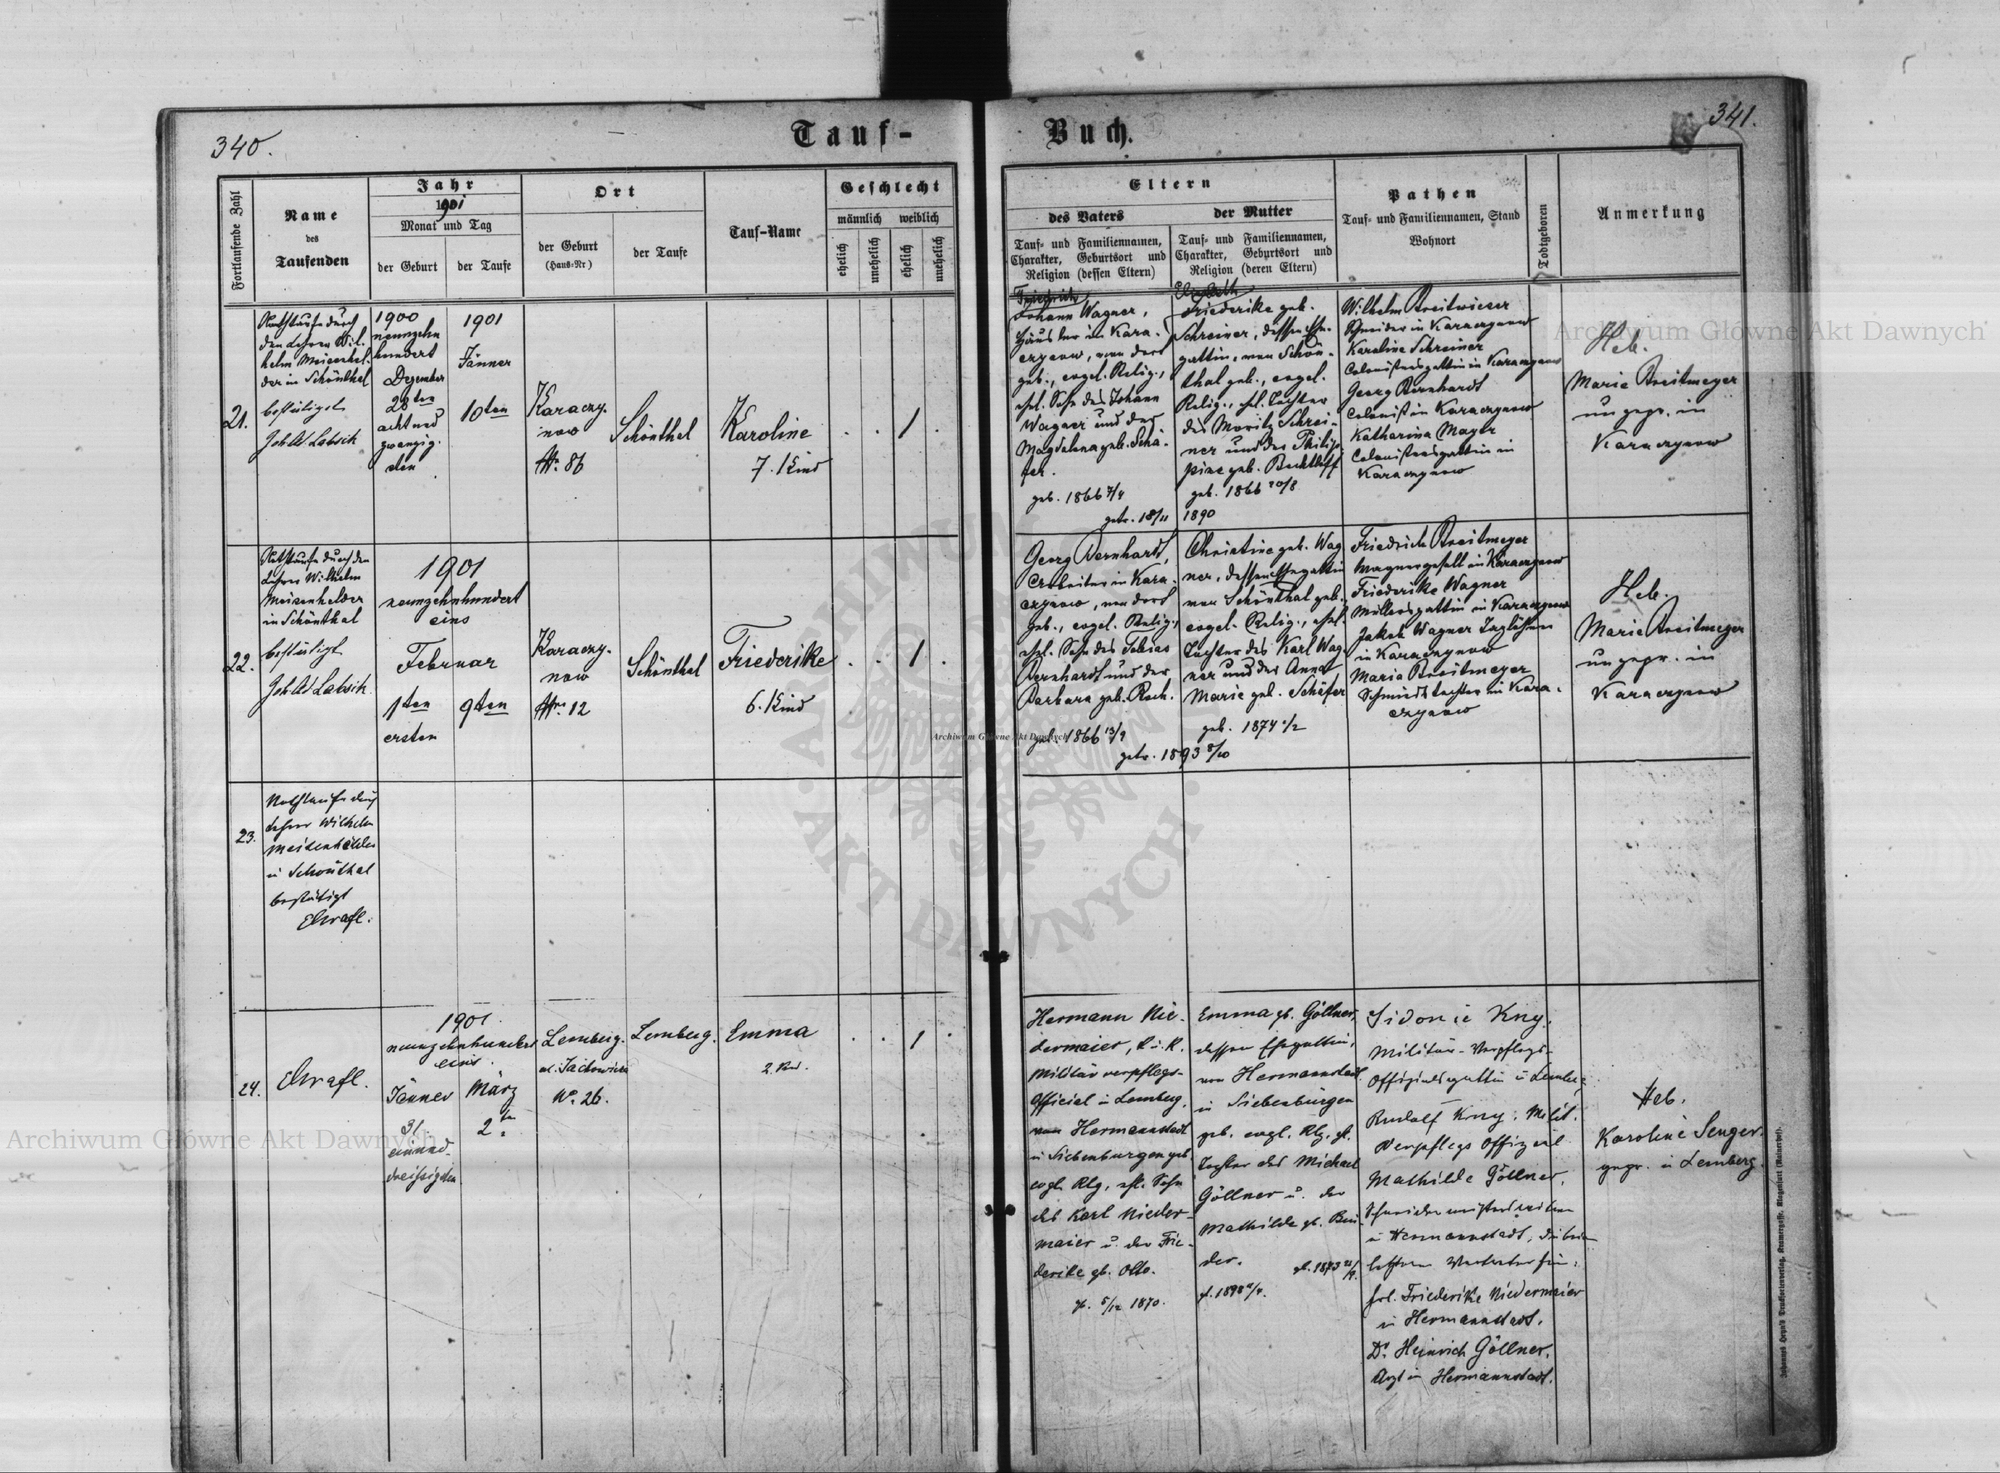 340.
Tauf-
Buch.
341.
Fortlaufende Zahl
Name
des
Taufenden
Jahr
1901
Monat und Tag
der Geburt
der Taufe
Ort
der Geburt
(Haus-Nr)
der Taufe
Tauf-Name
Geschlecht
männlich
weiblich
ehelich
unehelich
ehelich
unehelich
Eltern
des Vaters
Tauf- und Familiennamen,
Charakter, Geburtsort und
Religion (dessen Eltern)
der Mutter
Tauf- und Familiennamen,
Charakter, Geburtsort und
Religion (deren Eltern)
Pathen
Tauf- und Familiennamen, Stand
Wohnort
Todtgeboren
Anmerkung
21.
Nothtaufe durch
den Lehrer Wil-
helm Meisenhel-
der in Schönthal
bestätigt
1900
neunzehn
hundert
Dezember
28ten
acht und
zwanzig-
sten
1901
Jänner
10ten
Karaczy-
now
Nr. 86
Schönthal
Karoline
7. Kind
1
Friedrich
Johann Wagner,
Häusler in Kara-
czynow, von dort
geb., evgel. Relig.,
ehel. Sohn des Johann
Wagner und der
Magdalena geb. Schä-
fer.
geb. 1866 7/4
getr. 18/11 1890
Elisabeth
Friederike geb.
Schreiner, dessen Ehe-
gattin, von Schön-
thal geb., evgel.
Relig., ehel. Tochter
des Moritz Schrei-
ner und der Philip-
pine geb. Bechtloff
geb. 1866 20/8
Wilhelm Breitwieser
Schneider in Karaczynow
Karoline Schreiner
Colonistensgattin in Karaczynow
Georg Bernhardt
Colonist in Karaczynow
Katharina Mayer
Colonistensgattin in
Karaczynow
Heb.
Marie Breitmeyer
ungepr. in
Karaczynow
22.
Nothtaufe durch den
Lehrer Wilhelm
Meisenhelder
in Schönthal
bestätigt
1901
neunzehnhundert
eins
Februar
1ten
9ten
ersten
Karaczy-
now
Nr. 12
Schönthal
Friederike
6. Kind
1
Georg Bernhardt,
Arbeiter in Kara-
czynow, von dort
geb., evgel. Relig.,
ehel. Sohn des Tobias
Bernhardt und der
Barbara geb. Roch.
geb. 1866 13/9
getr. 1893 8/10
Christine geb. Wag
ner, dessen Ehegattin
von Schönthal geb.,
evgel. Relig., ehel.
Tochter des Karl Wag-
ner und der Anna
Marie geb. Schäfer
geb. 1874 1/2
Friedrich Breitmeyer
Wagnergesell in Karaczynow
Friederike Wagner
Müllersgattin in Karaczynow
Jakob Wagner Taglöhner
in Karaczynow
Maria Breitmeyer
Schmiedstochter in Kara-
czynow
Heb.
Marie Breitmeyer
ungepr. in
Karaczynow
23.
Nothtaufe durch
Lehrer Wilhelm
Meisenhelder
in Schönthal
bestätigt
24.
1901.
neunzehnhundert
eins.
Jänner
31
einund-
dreissigsten
März
2ten
Lemberg.
Nr. 26.
Lemberg.
Emma
2. Kind.
1
Hermann Nie-
dermaier, k. u. k.
Militärverpflegs-
Official in Lemberg,
von Hermannstadt
in Siebenbürgen geb.
evgl. Rlg., ehl. Sohn
des Karl Nieder-
maier u. der Frie-
derike gb. Otto.
g. 5/12 1870.
Emma gb. Göllner,
dessen Ehegattin,
von Hermannstadt
in Siebenbürgen
geb. evgl. Rlg. ehl.
Tochter des Michael
Göllner u. der
Mathilde gb. Bin-
der.
Sidonie Kny,
Militär-Verpflegs-
Offizialsgattin in Lemberg
Rudolf Kny, Milit.
Verpflegs Offizial
Mathilde Göllner,
in Hermannstadt,
frl. Friederike Niedermaier
in Hermannstadt.
Dr. Heinrich Göllner,
Arzt in Hermannstadt.
Heb.
Karoline Senger
gepr. in Lemberg.
Archiwum Główne Akt Dawnych
Archiwum Główne Akt Dawnych
Archiwum Główne Akt Dawnych
ARCHIWUM
AKT DAWNYCH